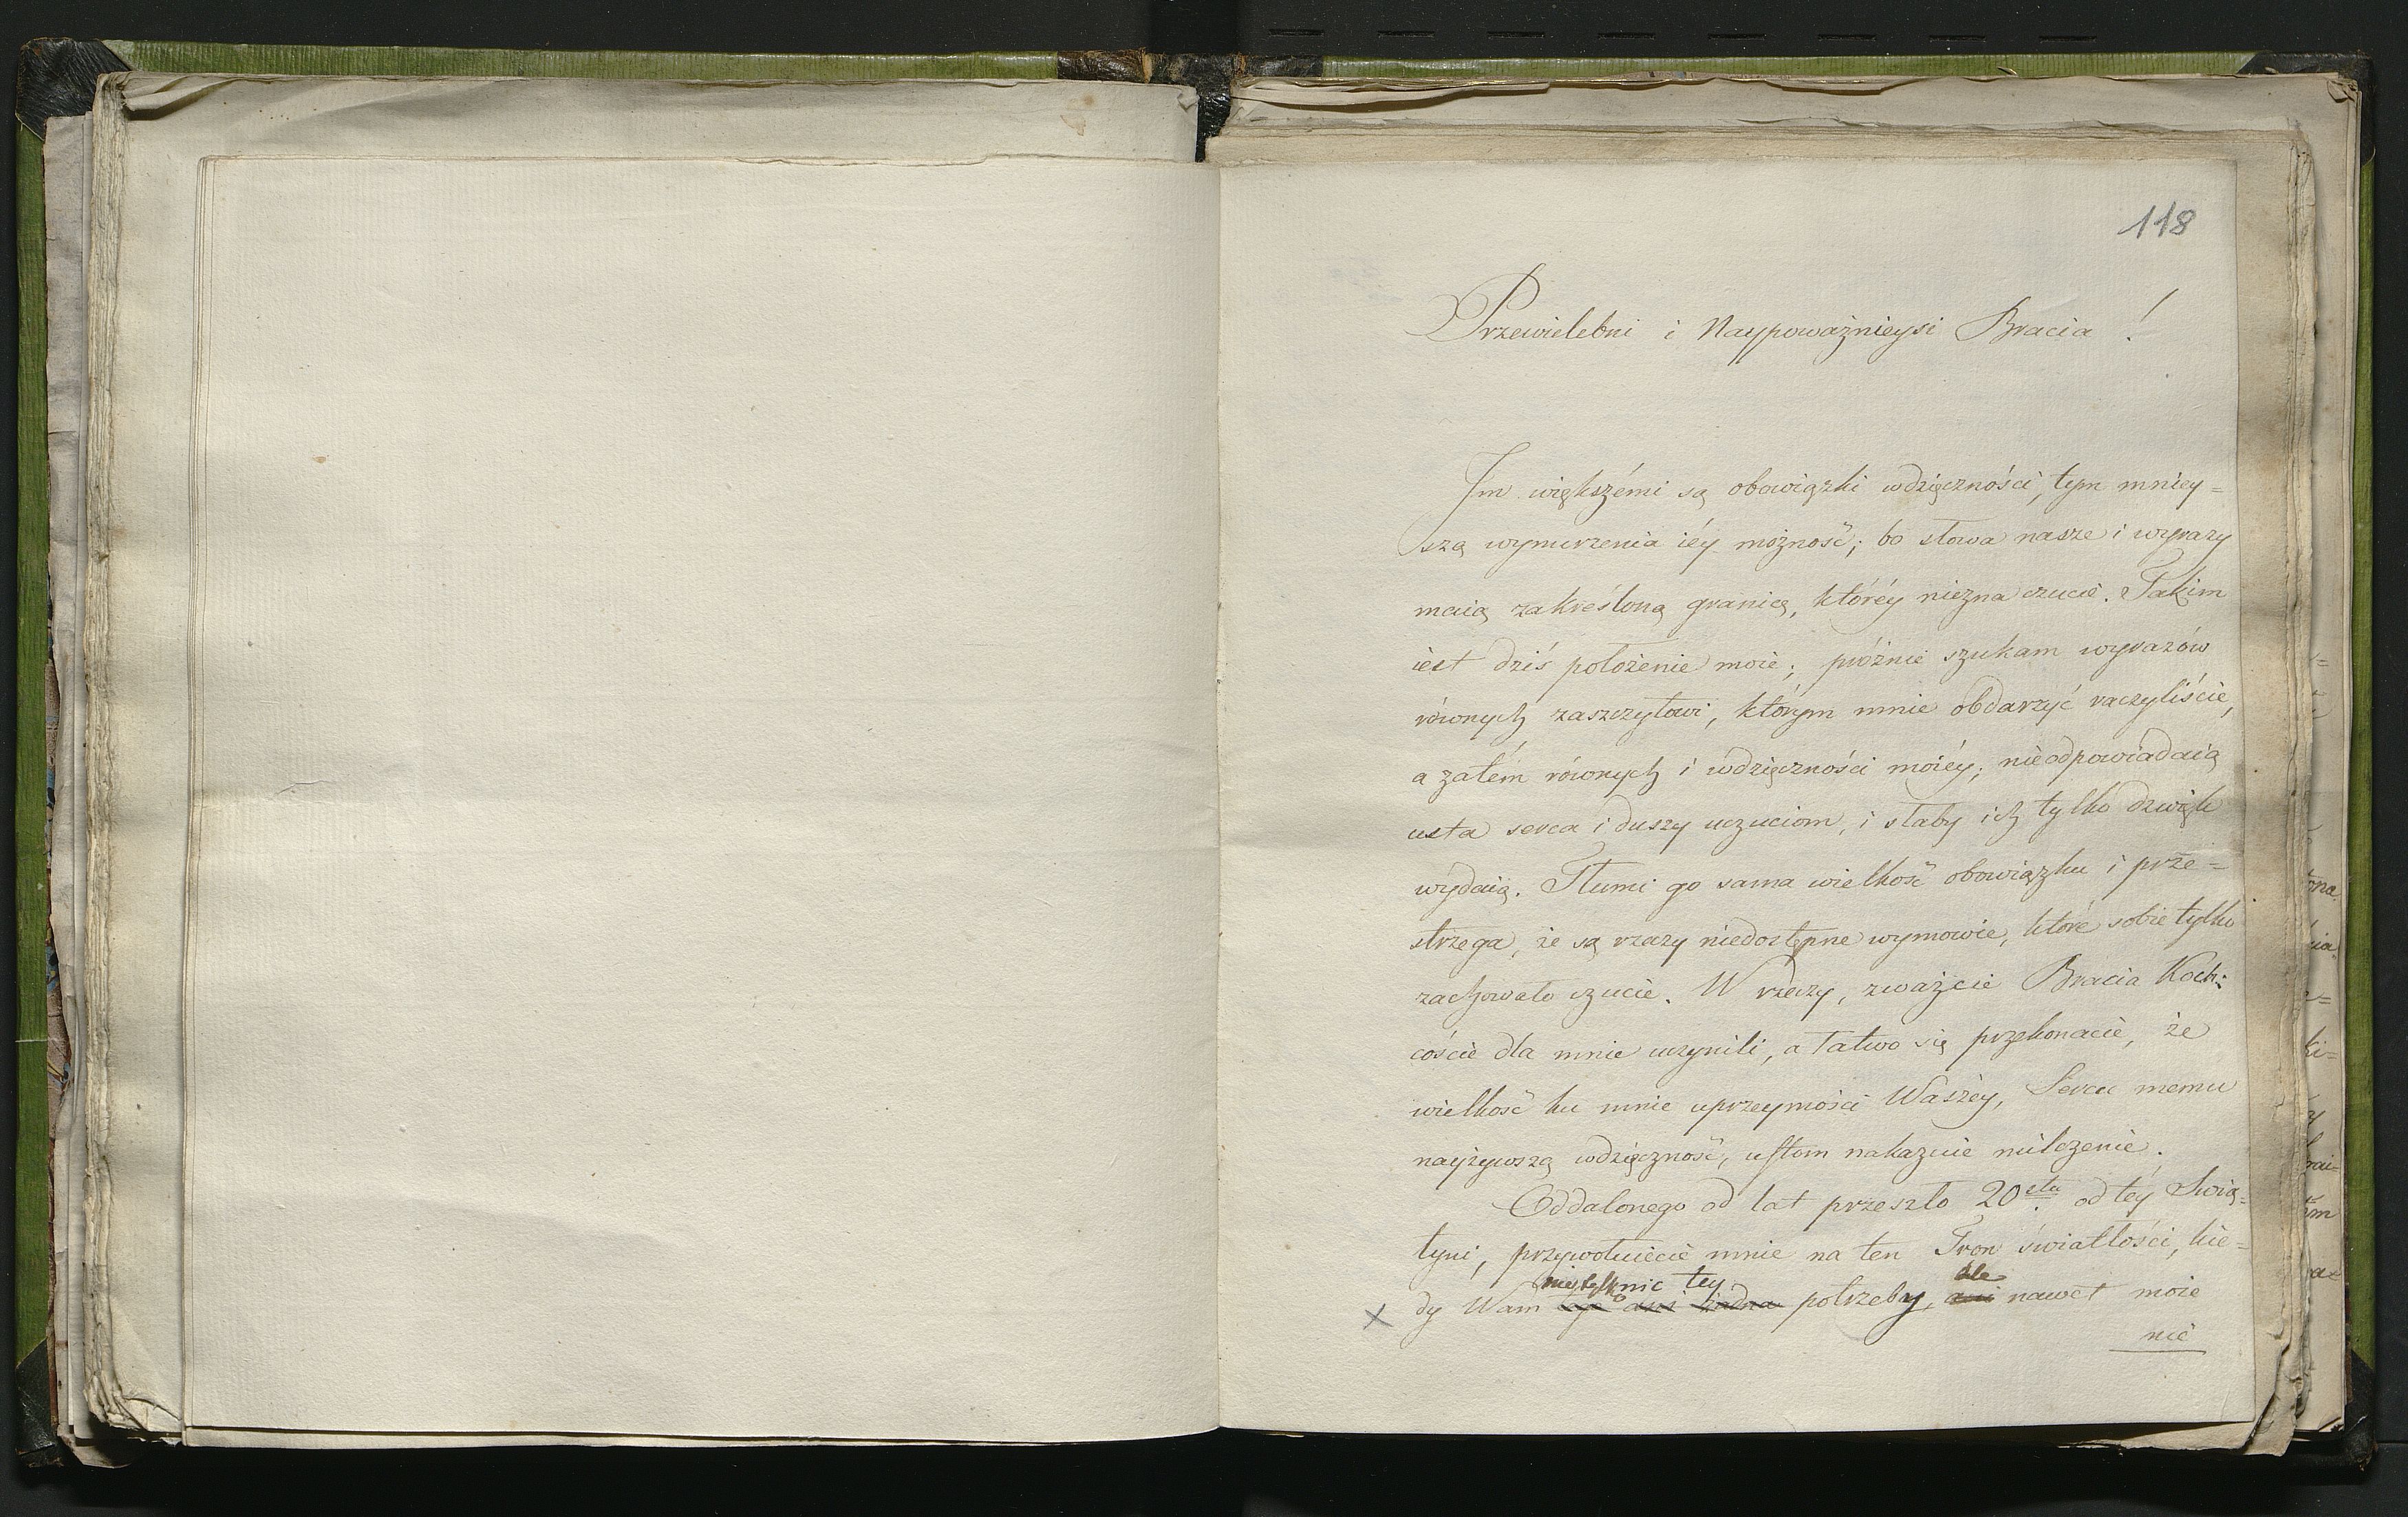 118
Przewielebni i Naypoważnieysi Bracia !
Im większémi są obowiązki wdzięczności, tym mniey=
szą wynurzenia iéy możność; bo słowa nasze i wyrazy
maią zakreśloną granicę, któréy niezna czucie. Takim
iest dziś położenie moie; próżnie szukam wyrazów
równych zaszczytowi, którym mnie obdarzyć raczyliście,
a zatém równych i wdzięczności moiéy; nieodpowiadaią
usta serca i duszy uczuciom, i słaby ich tylko dzwięk
wydaią. Tłumi go sama wielkość obowiązku i prze=
strzega, że są rzeczy niedostępne wymowie, które sobie tylko
zachowało czucie. W rzeczy, zważcie Bracia Koch:
coście dla mnie uczynili, a łatwo się przekonacie, że
wielkość ku mnie uprzeymości Waszéy, Sercu memu
nayżywszą wdzięczność, ustom nakazuie milczenie.
Oddalonego od lat przeszło 20stu od téy Swią=
tyni, przywołuiecie mnie na ten Tron światłości, kie=
nietylko nic tey ale
dy Wam ani żadna potrzeby, ani nawet moie
nie